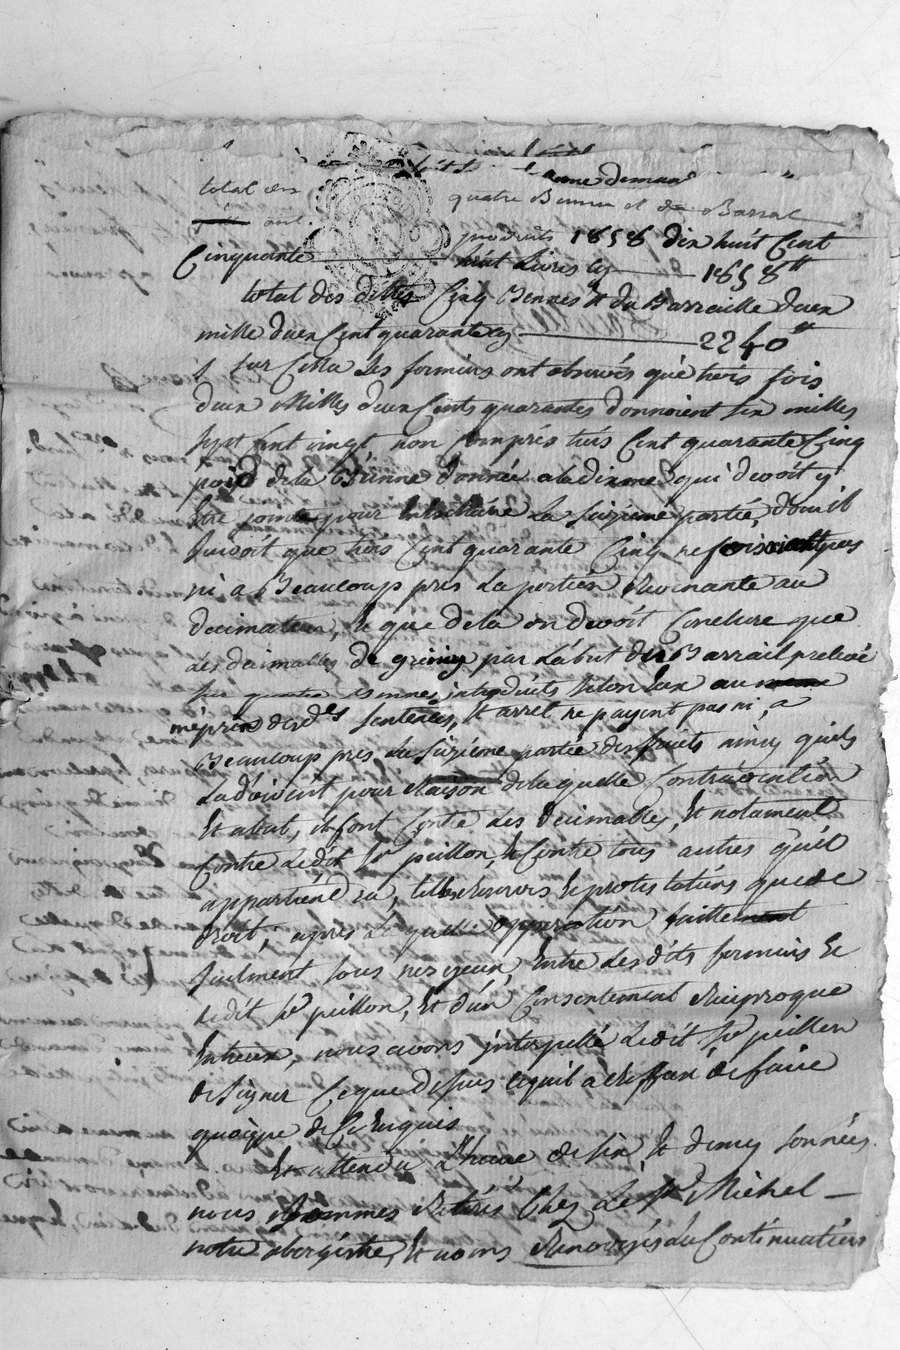 total des
quatre Bennes et du Barral
produits 1858 dix huit Cent
Cinquante huit Livres cy 1858 ''
total des dittes Cinq Bennes & du Barraille deux
mille deux Cent quarante cy 2240 ''
sur Cella les fermiers ont observés que trois fois
deux Milles deux Cents quarantes donnoient six milles
sept Cent vingt non Compris trois Cent quarante Cinq
poid de la Bienne donnée a la dixme qui devoit y
être jointe pour la Sizieme partie, d'ou il
suivoit que trois Cent quarante Cinq ne faisoient pas
ni a Beaucoup pres la portion revenante au
decimateur, & que de la on devoit Conclure que
les decimables de grigny par l'abut du Barrail prelevé
sur quatre Bennes introduits selon eux au
mépris desdes sentences, & arret ne payent pas ni, a
Beaucoup pres la Sizieme partie des fruits ainsy quils
la doivent pour Raison de laquelle Contravention
Et abut, ils font Contre les decimables, & notament
Contre ledit Sr peillon, & Contre tous autres qu'il
appartiendra, telles reserves & protestations que de
droit; apres laquelle opperation faitte
seulment sous nos yeux, Entre lesdits fermiers &
ledit Sr peillon, & d'un Consentement Reciproque
Entreux, nous avons interpellé ledit Sr peillon
de Signer Ce que dessus Ce quil a Reffusé de faire
quoique de Ce Enquis
Et attendu L'heure de six & demy sonnées
nous sommes Retirés Chez Le Sr Michel
notre abergiste, & avons Renvoyés la Continuation